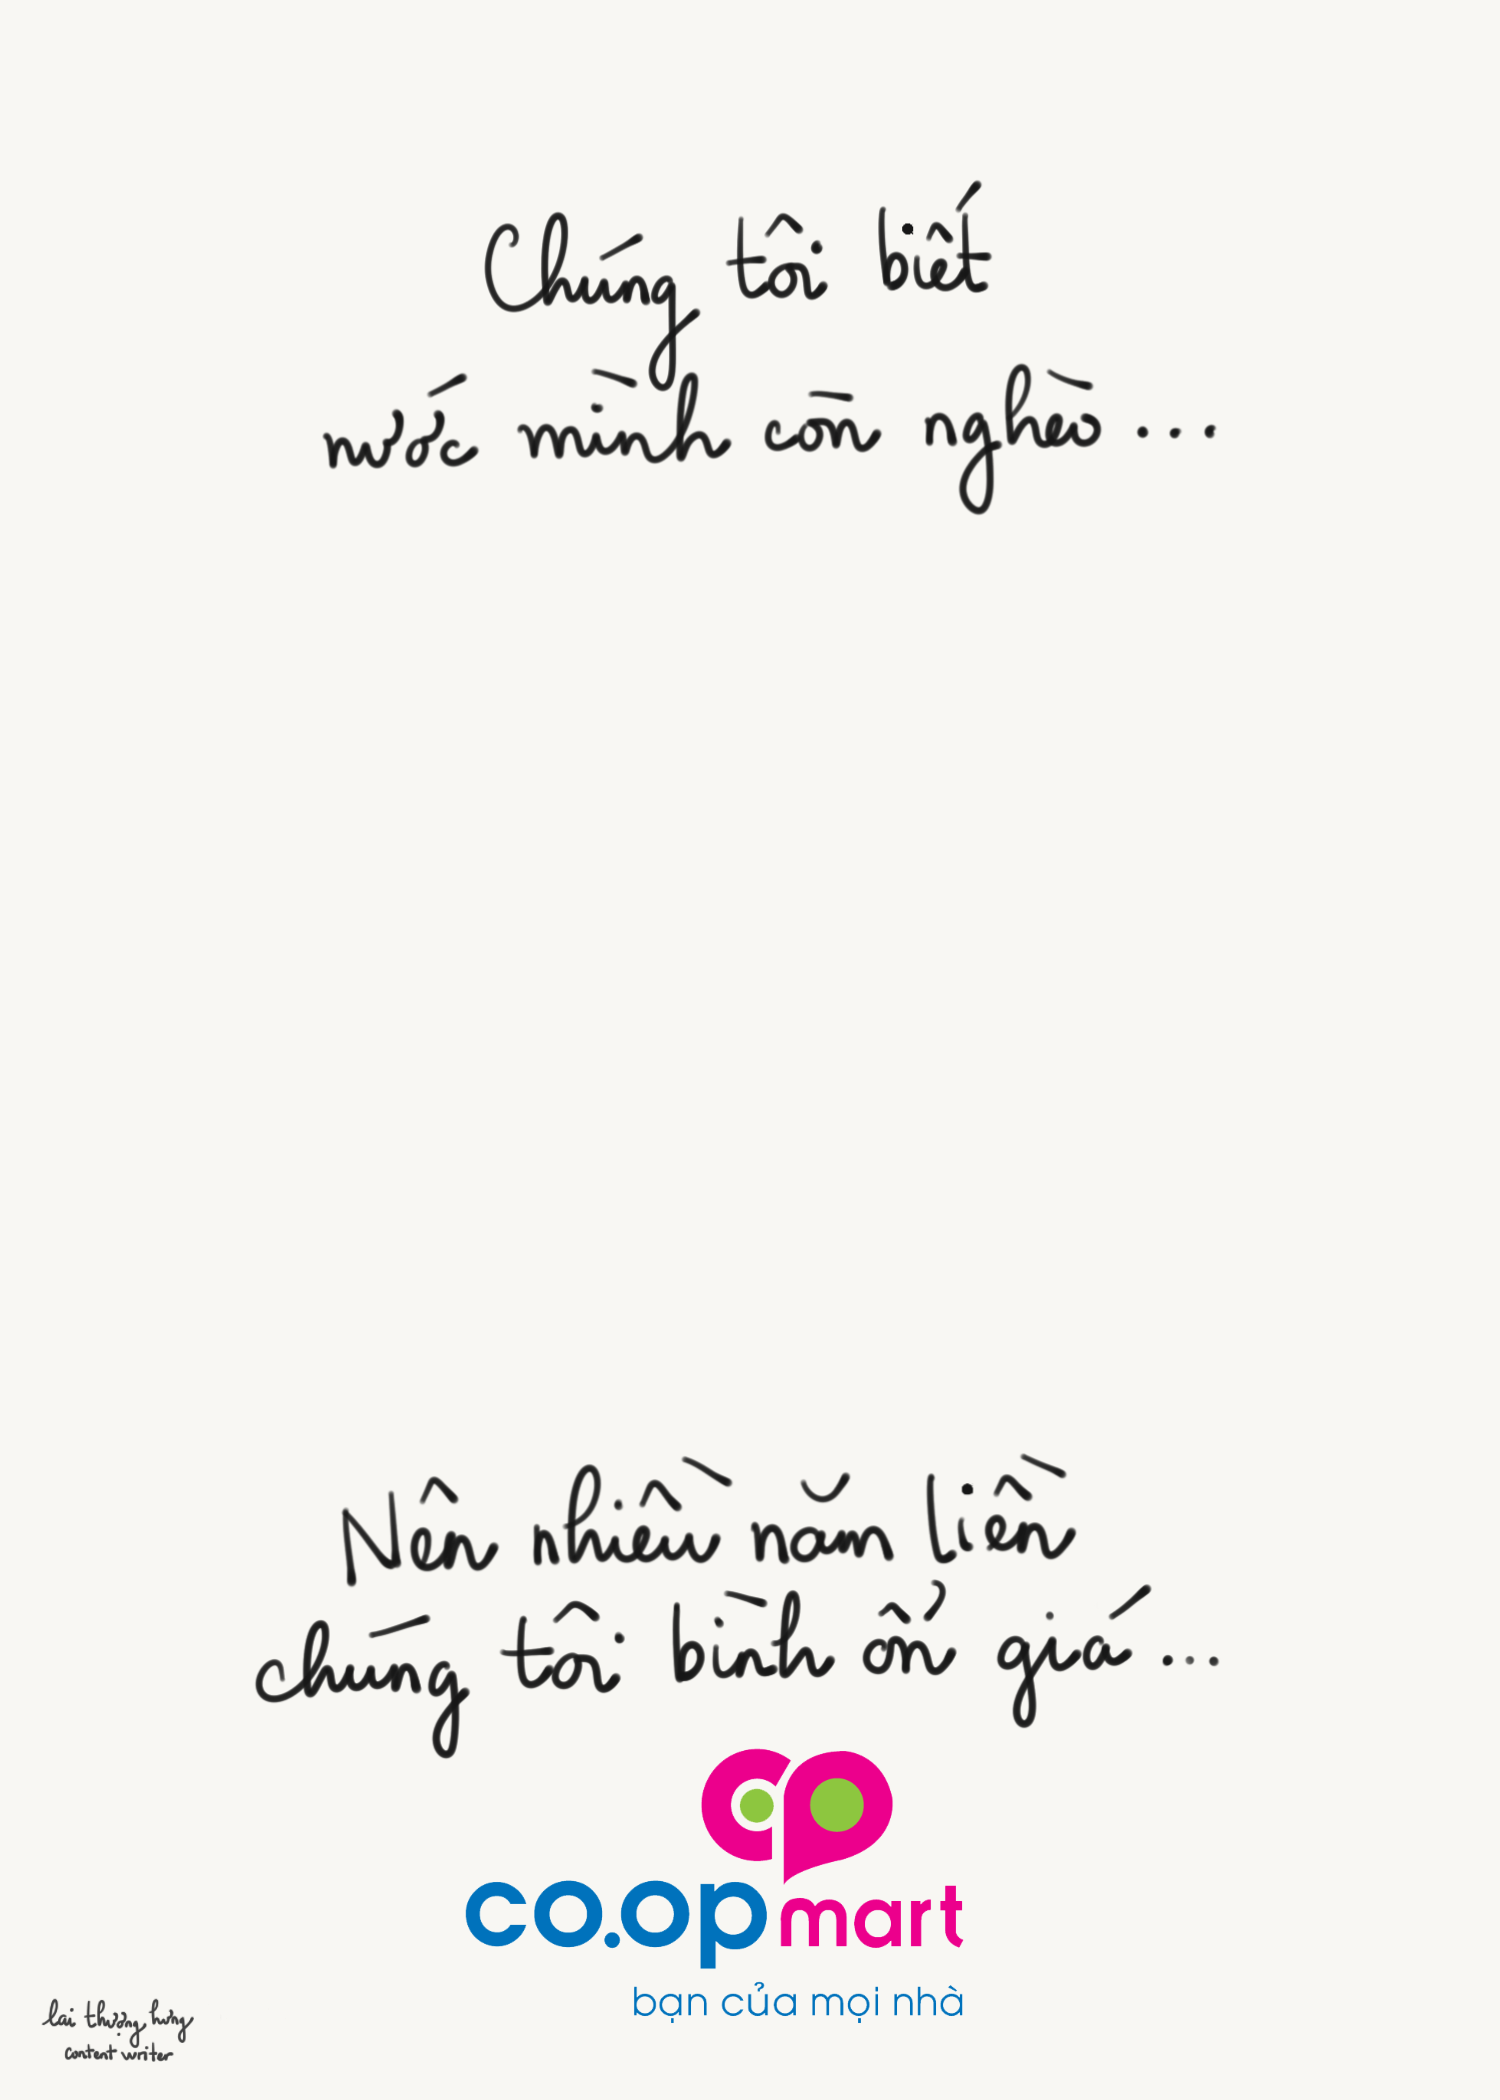 Chúng tôi biết
nước mình còn nghèo...
Nên nhiều năm liền
chúng tôi bình ổn giá...
co.opmart
bạn của mọi nhà
lai thượng hưng
content writer